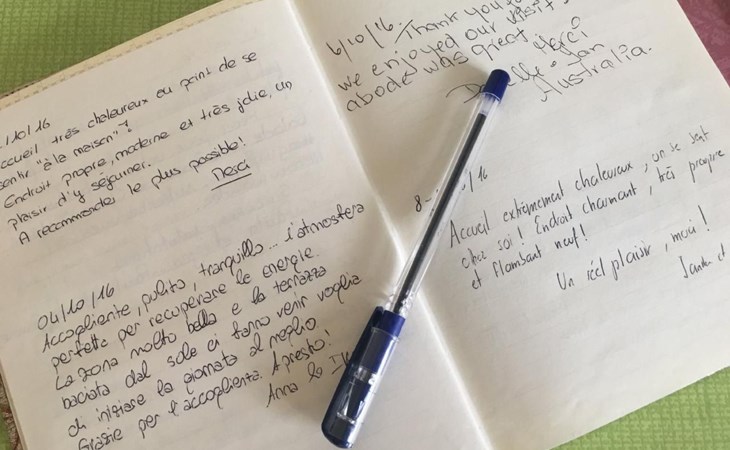 /10/16
ccueil très chaleureux au point de se
sentir "à la maison"!
Endroit propre, moderne et très jolie, un
plaisir d'y séjourner.
A recommender le plus possible!
Merci
04/10/16
Accogliente, pulito, tranquillo... l'atmosfera
perfetta per recuperare le energie.
La zona molto bella e la terrazza
baciata dal sole ci fanno venir voglia
di iniziare la giornata al meglio.
Grazie per l'accoglienza. A presto!
Anna
6/10/16. Thank you
we enjoyed our visit
abode was great. Merci
Jan
Australia.
8- /16
Accueil extrêmement chaleureux, on se sent
chez soi! Endroit charmant, très propre
et flambant neuf!
Un réel plaisir, merci!